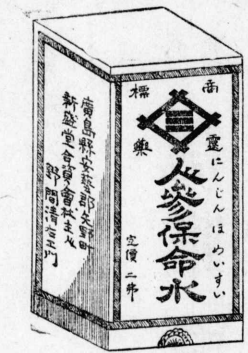 商標
三
靈藥
にんじんほめいすい
人參保命水
定價 二弗
廣島縣安藝郡矢野町
新盛堂合資會社主人
野間清右エ門